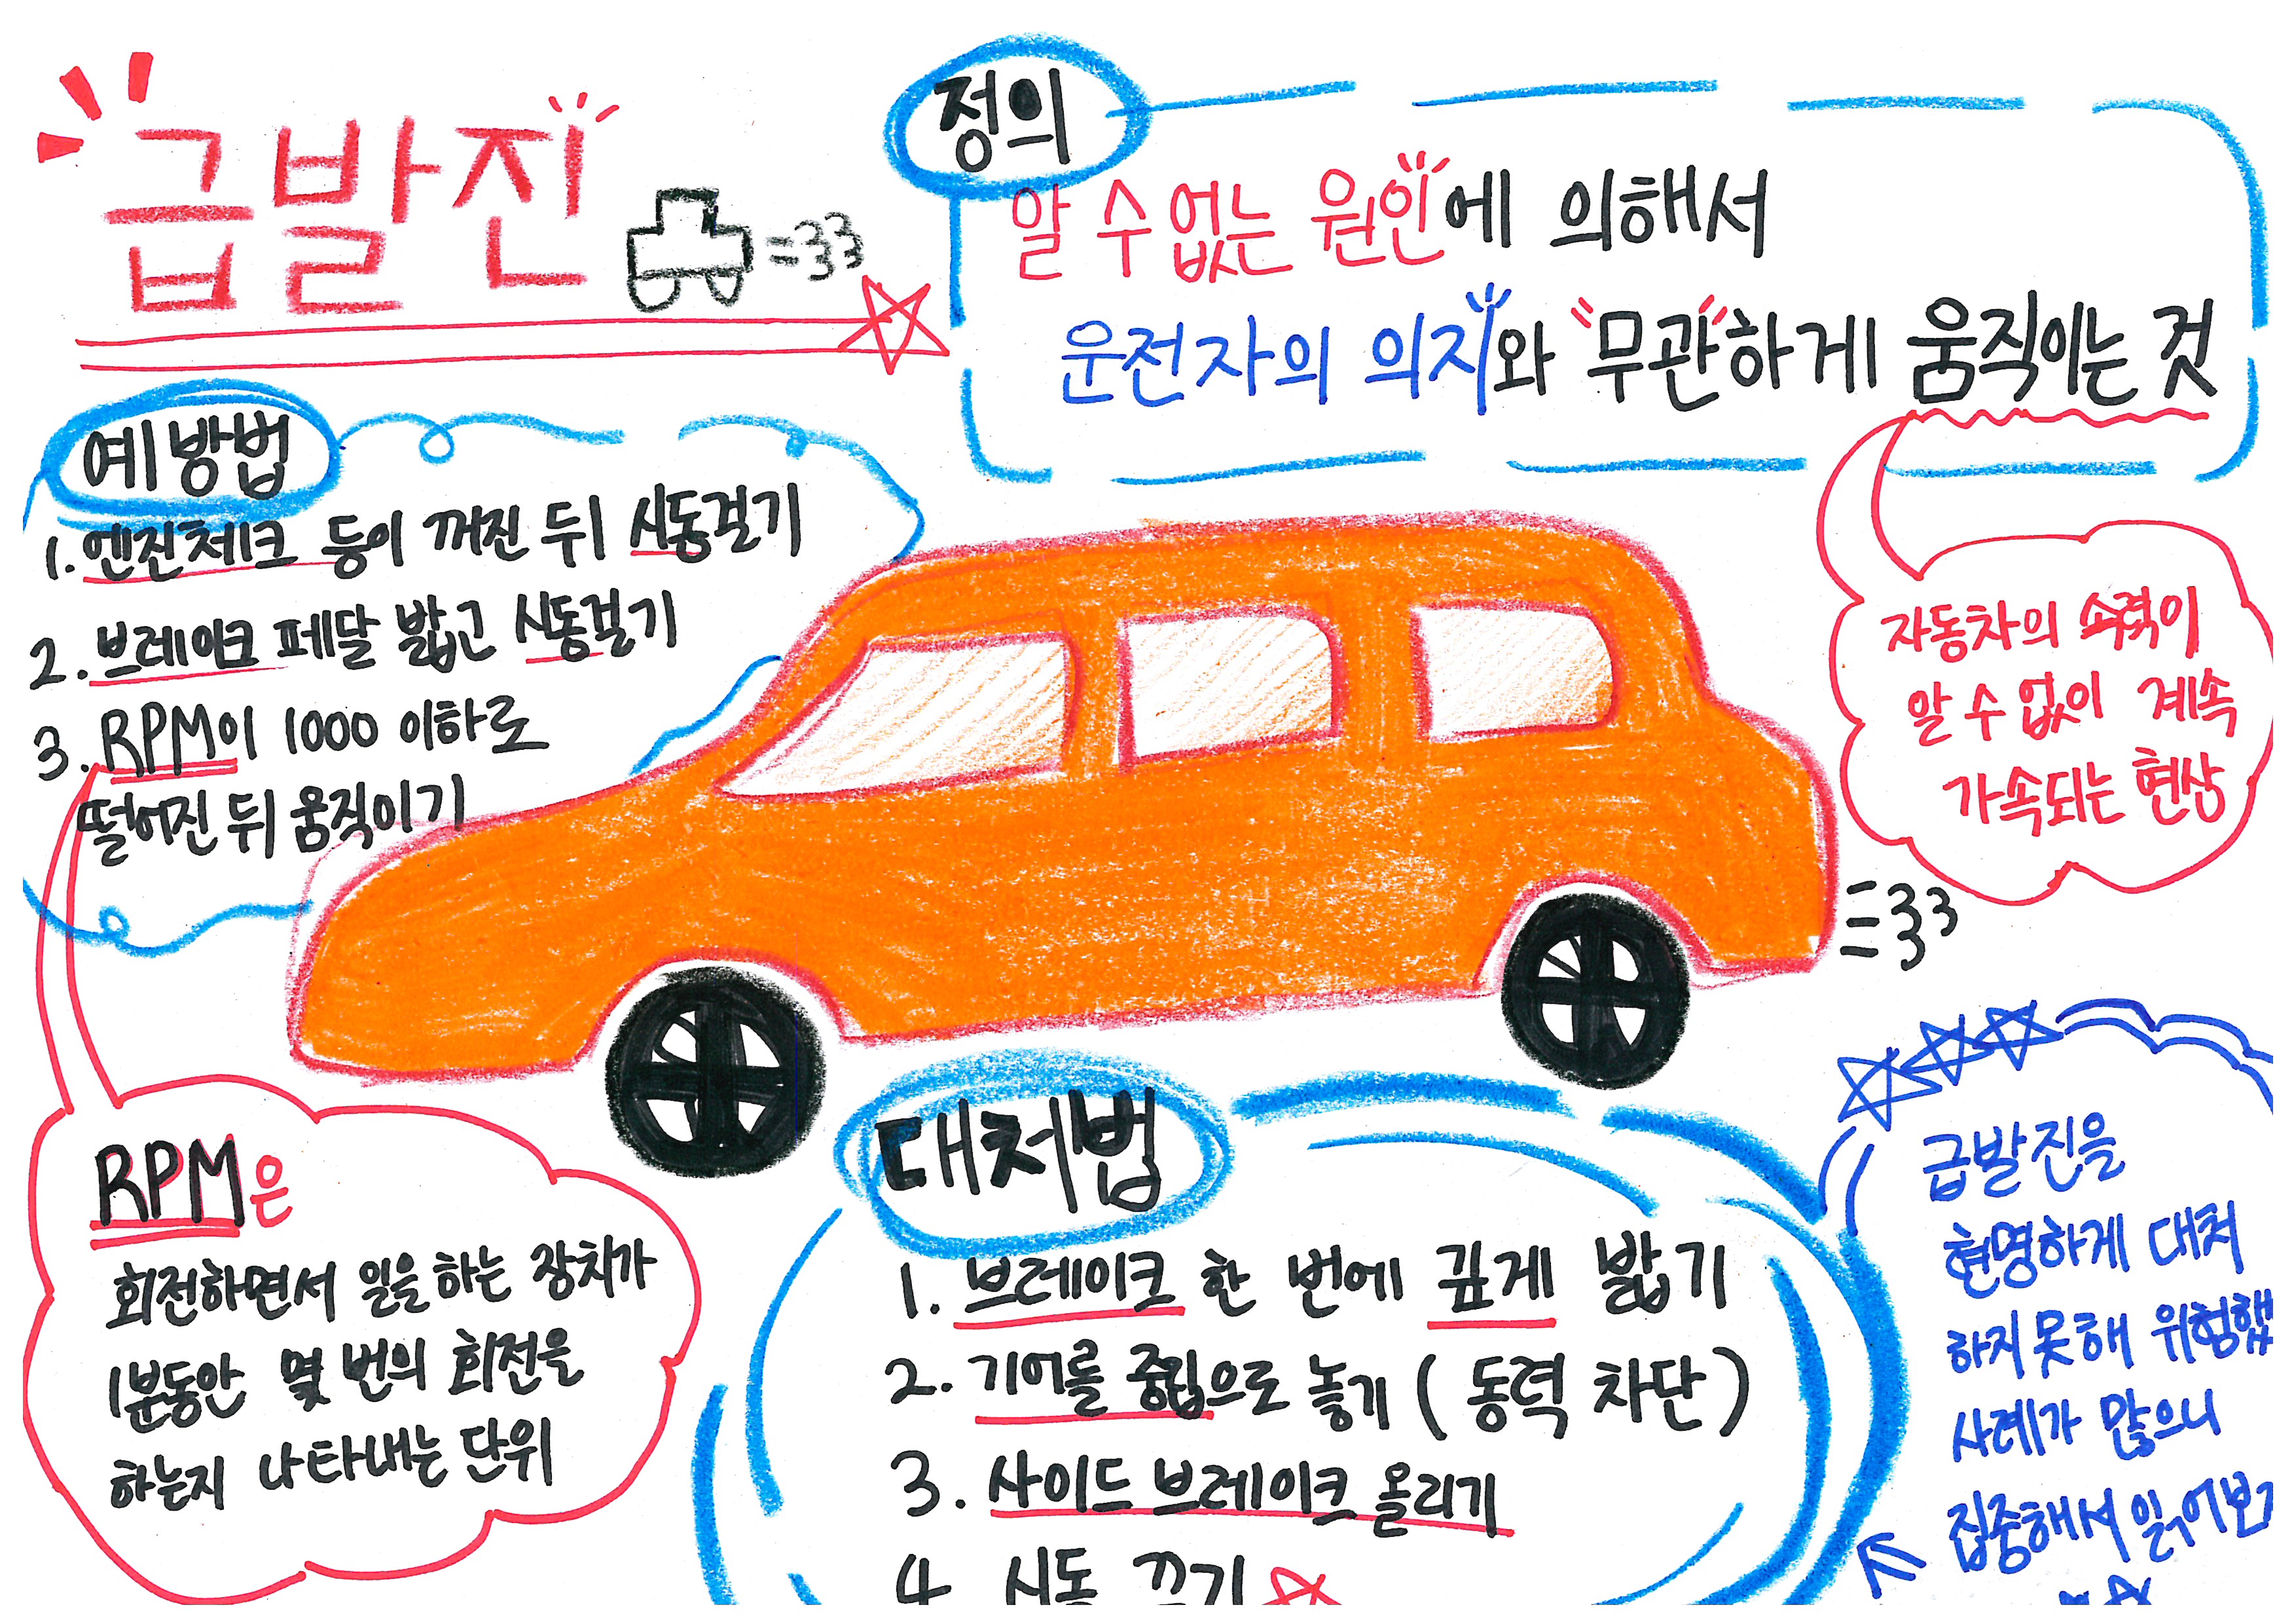 급발진
정의
알 수 없는 원인에 의해서
운전자의 의지와 "무관"하게 움직이는 것
자동차의 속력이
알 수 없이 계속
가속되는 현상
예방법
1. 엔진체크 등이 꺼진 뒤 시동걸기
2. 브레이크 페달 밟고 시동걸기
3. RPM이 1000 이하로
떨어진 뒤 움직이기
RPM은
회전하면서 일을 하는 장치가
1분동안 몇 번의 회전을
하는지 나타내는 단위
대처법
1. 브레이크 한 번에 깊게 밟기
2. 기어를 중립으로 놓기 (동력 차단)
3. 사이드 브레이크 올리기
4 시동 끄기
급발진을
현명하게 대처
하지 못해 위험했
사례가 많으니
집중해서 읽어보